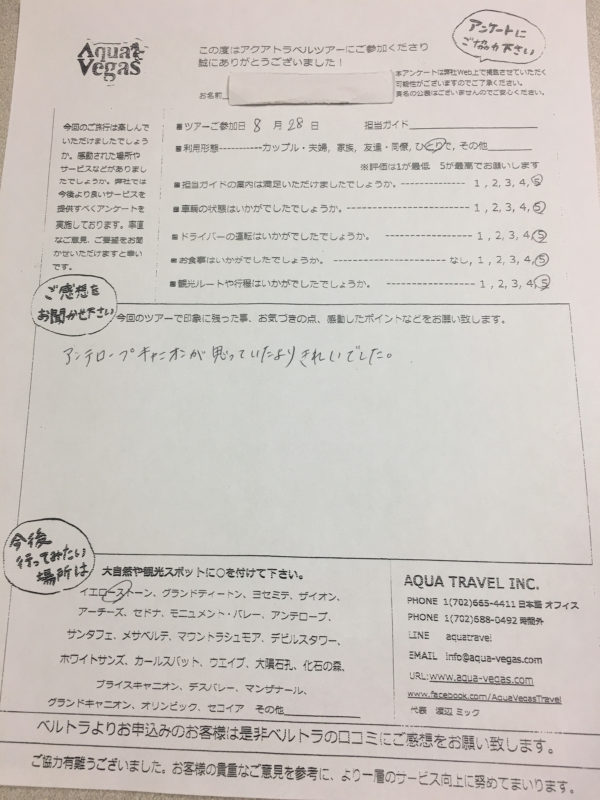 Aqua Vegas
この度はアクアトラベルツアーにご参加くださり
誠にありがとうございました！
アンケートに
ご協力下さい
本アンケートは弊社Web上で掲載させていただく
可能性がございますのでご了承ください。
真名の公表はございませんのでご安心ください。
お名前
今回のご旅行は楽しんで
いただけましたでしょう
か。感動された場所や
サービスなどがありまし
たでしょうか。弊社では
今後より良いサービスを
提供すべくアンケートを
実施しております。率直
なご意見、ご要望をお聞
かせいただけますと幸い
です。
■ツアーご参加日 8 月 28 日 担当ガイド
■利用形態-----------カップル・夫婦, 家族, 友達・同僚, ひとりで, その他
※評価は1が最低 5が最高でお願いします
■担当ガイドの案内は満足いただけましたでしょうか。--------------- 1 , 2, 3, 4, 5
■車輌の状態はいかがでしたでしょうか。--------------------------- 1 , 2, 3, 4, 5
■ドライバーの運転はいかがでしたでしょうか。--------------------- 1 , 2, 3, 4, 5
■お食事はいかがでしたでしょうか。--------------------------なし, 1 , 2, 3, 4, 5
■観光ルートや行程はいかがでしたでしょうか。--------------------- 1 , 2, 3, 4, 5
ご感想を
お聞かせ下さい
今回のツアーで印象に残った事、お気づきの点、感動したポイントなどをお願い致します。
アンテロープキャニオンが思っていたよりきれいでした。
今後
行ってみたい
場所は
大自然や観光スポットに○を付けて下さい。
イエローストーン、グランドティートン、ヨセミテ、ザイオン、
アーチーズ、セドナ、モニュメント・バレー、アンテロープ、
サンタフェ、メサベルテ、マウントラシュモア、デビルスタワー、
ホワイトサンズ、カールスバット、ウエイブ、大隕石孔、化石の森、
ブライスキャニオン、デスバレー、マンザナール、
グランドキャニオン、オリンピック、セコイア その他
AQUA TRAVEL INC.
PHONE 1(702)665-4411 日本語 オフィス
PHONE 1(702)688-0492 時間外
LINE aquatravel
EMAIL info@aqua-vegas.com
URL:www.aqua-vegas.com
www.facebook.com/AquaVegasTravel
代表 渡辺 ミック
ベルトラよりお申込みのお客様は是非ベルトラの口コミにご感想をお願い致します。
ご協力有難うございました。お客様の貴重なご意見を参考に、より一層のサービス向上に努めてまいります。